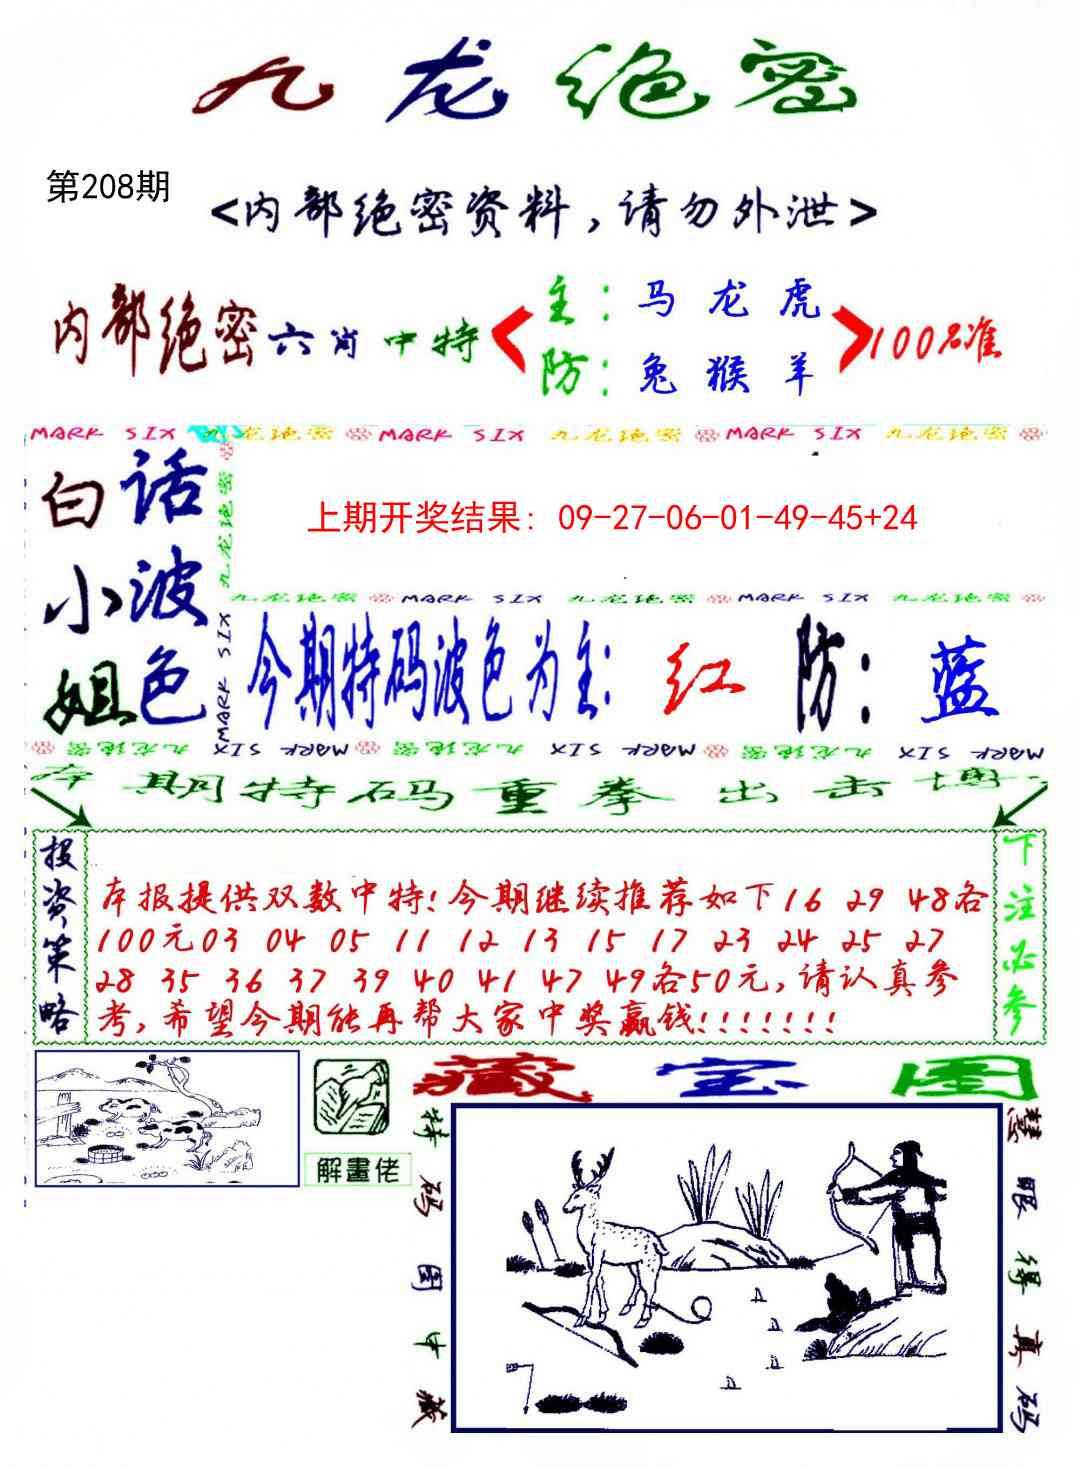 九龙绝密
第208期
<内部绝密资料,请勿外泄>
内部绝密六肖中特
主:马龙虎
防:兔猴羊
100%准
MARK SIX 九龙绝密 MARK SIX 九龙绝密 MARK SIX 九龙绝密
白小姐
话波色
九龙绝密
MARK SIX
上期开奖结果:09-27-06-01-49-45+24
九龙绝密 MARK SIX 九龙绝密 MARK SIX 九龙绝密
今期特码波色为主:红 防:蓝
九龙绝密 MARK SIX 九龙绝密 MARK SIX 九龙绝密 MARK SIX
本期特码重拳出击博
投资策略
本报提供双数中特!今期继续推荐如下16 29 48各
100元03 04 05 11 12 13 15 17 23 24 25 27
28 35 36 37 39 40 41 47 49各50元,请认真参
考,希望今期能再帮大家中奖赢钱!!!!!!!
下注必参
解畫佬
藏宝图
特码图中藏
慧眼得真码